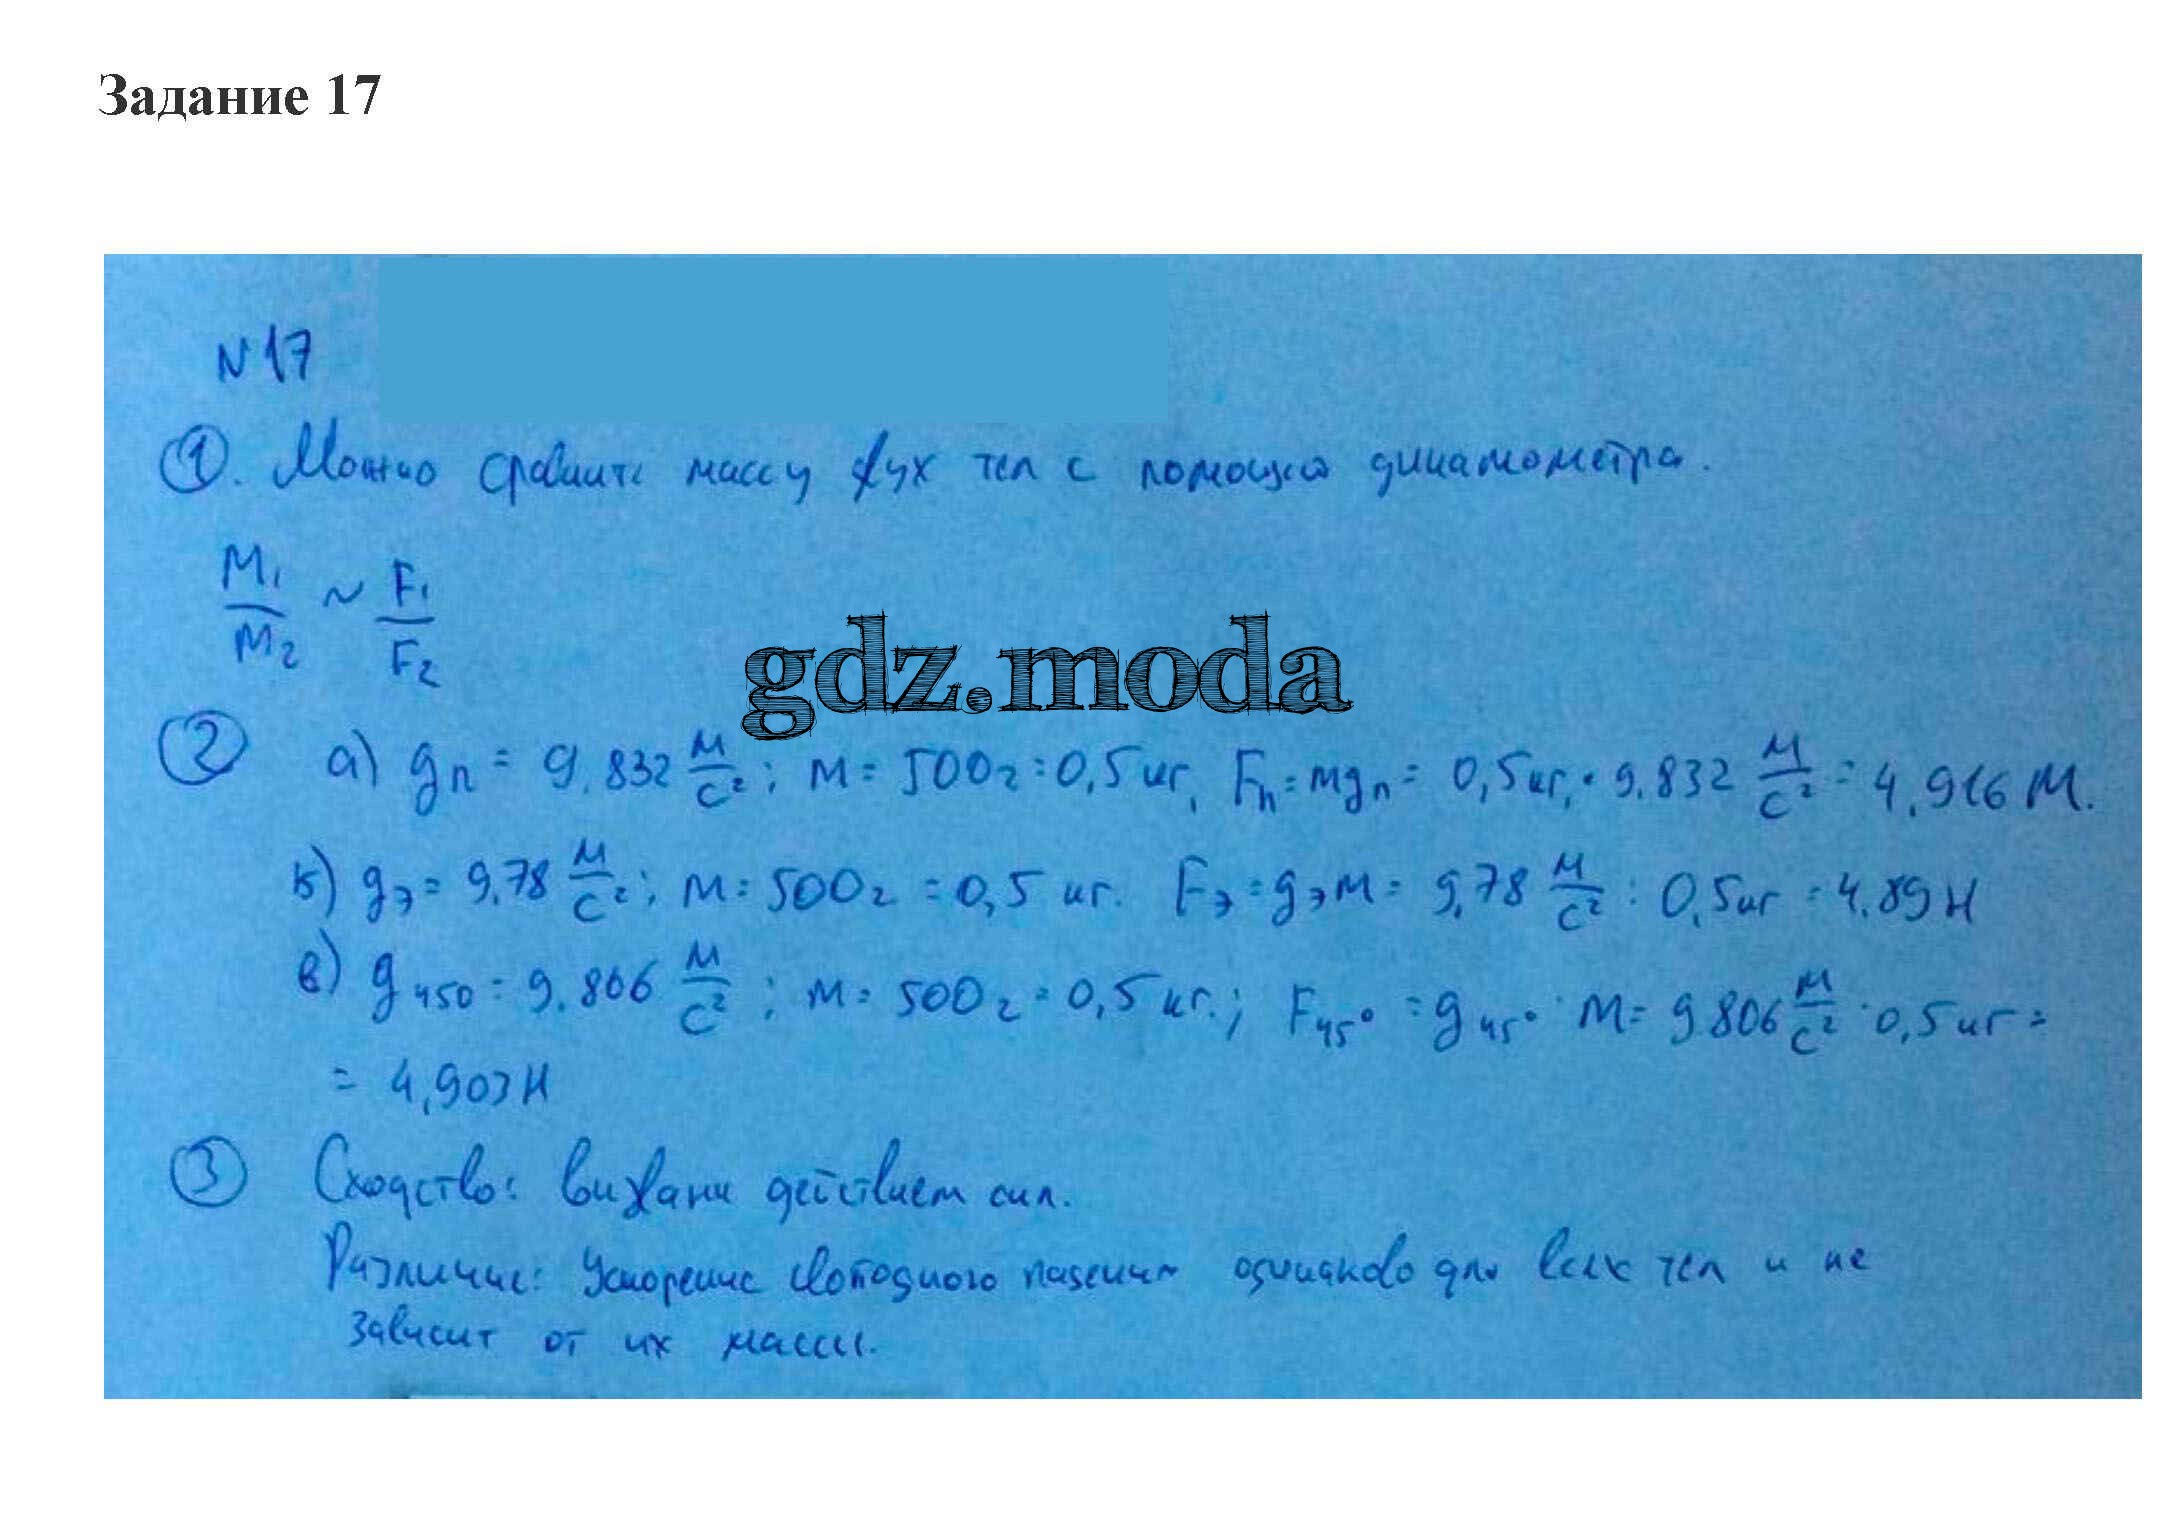 Задание 17
N17
①. Можно сравнить массу двух тел с помощью динамометра.
M₁/M₂ ~ F₁/F₂
gdz.moda
② а) gп = 9.832 м/с²; м = 500г = 0,5 кг, Fп = mgп = 0,5кг. · 9.832 м/с² = 4,916 М.
б) gэ = 9,78 м/с²; м = 500г = 0,5 кг. Fэ = gэм = 9,78 м/с² : 0,5кг = 4.89Н
в) g450 = 9.806 м/с²; м = 500г = 0,5 кг.; F45° = g45° · м = 9 806 м/с² · 0,5 кг =
= 4,903Н
③ Сходство: вызваны действием сил.
Различие: Ускорение свободного падения одинаково для всех тел и не
зависит от их массы.